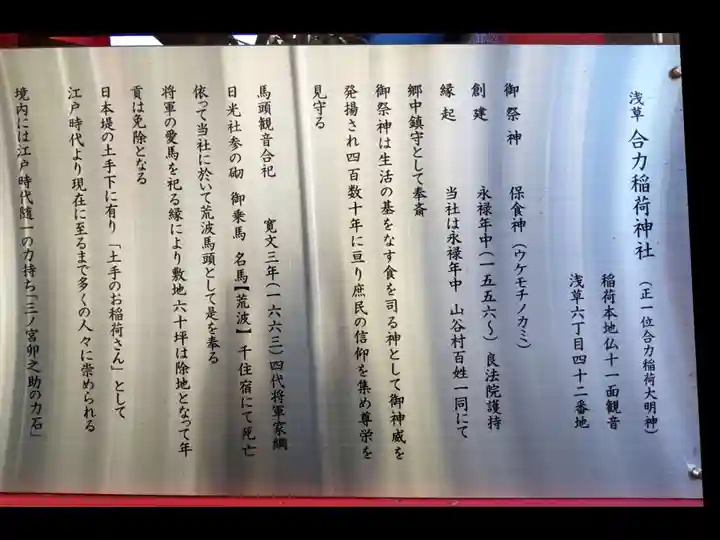 浅草 合力稲荷神社 (正一位合力稲荷大明神)
稲荷本地仏十一面観音
浅草六丁目四十二番地
御祭神 保食神(ウケモチノカミ)
創建 永禄年中(一五五六〜)良法院護持
縁起 当社は永禄年中 山谷村百姓一同にて
郷中鎮守として奉斎
御祭神は生活の基をなす食を司る神として御神威を
発揚され四百数十年に亘り庶民の信仰を集め尊栄を
見守る
馬頭観音合祀 寛文三年(一六六三)四代将軍家綱
日光社参の砌 御乗馬 名馬【荒波】千住宿にて死亡
依って当社に於いて荒波馬頭として是を奉る
将軍の愛馬を祀る縁により敷地六十坪は除地となって年
貢は免除となる
日本堤の土手下に有り「土手のお稲荷さん」として
江戸時代より現在に至るまで多くの人々に崇められる
境内には江戸時代随一の力持ち「三ノ宮卯之助の力石」